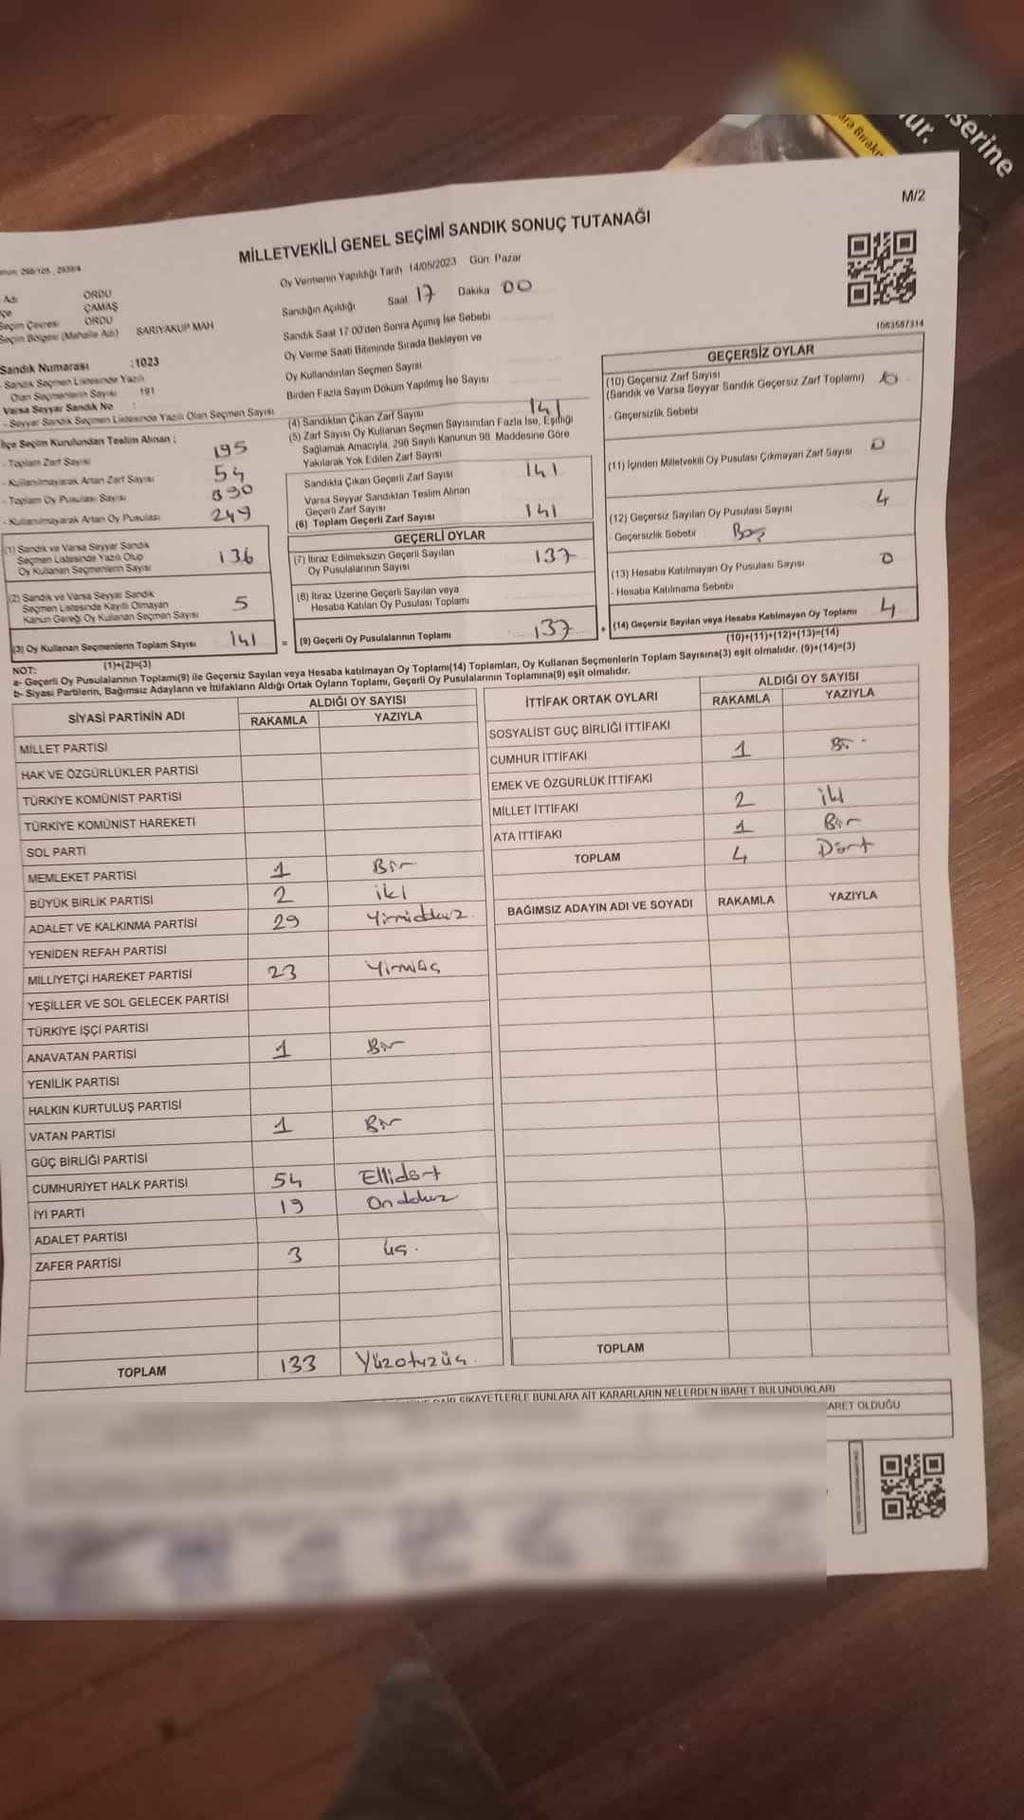 serine
ur.
ara Bırakı
M/2
MİLLETVEKİLİ GENEL SEÇİMİ SANDIK SONUÇ TUTANAĞI
Oy Vermenin Yapıldığı Tarih 14/05/2023 Gün Pazar
Adı ORDU
ÇAMAŞ
Seçim Çevresi ORDU
Seçim Bölgesi (Mahalle Adı) SARIYAKUP MAH
Sandığın Açıldığı Saat 17 Dakika 00
Sandık Saat 17:00'den Sonra Açımış İse Sebebi
Oy Verme Saati Bitiminde Sırada Bekleyen ve
Oy Kullandırılan Seçmen Sayısı
Birden Fazla Sayım Döküm Yapılmış İse Sayısı
1063587314
Sandık Numarası : 1023
- Sandık Seçmen Listesinde Yazılı
Olan Seçmenlerin Sayısı 191
Varsa Seyyar Sandık No :
- Seyyar Sandık Seçmen Listesinde Yazılı Olan Seçmen Sayısı
İlçe Seçim Kurulundan Teslim Alınan :
- Toplam Zarf Sayısı 195
- Kullanılmayarak Artan Zarf Sayısı 54
- Toplam Oy Pusulası Sayısı 390
- Kullanılmayarak Artan Oy Pusulası 249
(1) Sandık ve Varsa Seyyar Sandık
Seçmen Listesinde Yazılı Olup
Oy Kullanan Seçmenlerin Sayısı 136
(2) Sandık ve Varsa Seyyar Sandık
Seçmen Listesinde Kayıtlı Olmayan
Kanun Gereği Oy Kullanan Seçmen Sayısı 5
(3) Oy Kullanan Seçmenlerin Toplam Sayısı 141 =
(1)+(2)=(3)
(4) Sandıktan Çıkan Zarf Sayısı 141
(5) Zarf Sayısı Oy Kullanan Seçmen Sayısından Fazla İse, Eşitliği
Sağlamak Amacıyla, 298 Sayılı Kanunun 98. Maddesine Göre
Yakılarak Yok Edilen Zarf Sayısı
Sandıkta Çıkan Geçerli Zarf Sayısı 141
Varsa Seyyar Sandıktan Teslim Alınan
Geçerli Zarf Sayısı
(6) Toplam Geçerli Zarf Sayısı 141
GEÇERLİ OYLAR
(7) İtiraz Edilmeksizin Geçerli Sayılan
Oy Pusulalarının Sayısı 137
(8) İtiraz Üzerine Geçerli Sayılan veya
Hesaba Katılan Oy Pusulası Toplamı
(9) Geçerli Oy Pusulalarının Toplamı 137 +
GEÇERSİZ OYLAR
(10) Geçersiz Zarf Sayısı
(Sandık ve Varsa Seyyar Sandık Geçersiz Zarf Toplamı) 0
- Geçersizlik Sebebi
(11) İçinden Milletvekili Oy Pusulası Çıkmayan Zarf Sayısı 0
(12) Geçersiz Sayılan Oy Pusulası Sayısı 4
- Geçersizlik Sebebi Boş
(13) Hesaba Katılmayan Oy Pusulası Sayısı 0
- Hesaba Katılmama Sebebi
(14) Geçersiz Sayılan veya Hesaba Katılmayan Oy Toplamı 4
(10)+(11)+(12)+(13)=(14)
NOT:
a- Geçerli Oy Pusulalarının Toplamı(9) ile Geçersiz Sayılan veya Hesaba katılmayan Oy Toplamı(14) Toplamları, Oy Kullanan Seçmenlerin Toplam Sayısına(3) eşit olmalıdır. (9)+(14)=(3)
b- Siyasi Partilerin, Bağımsız Adayların ve İttifakların Aldığı Ortak Oyların Toplamı, Geçerli Oy Pusulalarının Toplamına(9) eşit olmalıdır.
SİYASİ PARTİNİN ADI ALDIĞI OY SAYISI
RAKAMLA YAZIYLA
MİLLET PARTİSİ
HAK VE ÖZGÜRLÜKLER PARTİSİ
TÜRKİYE KOMÜNİST PARTİSİ
TÜRKİYE KOMÜNİST HAREKETİ
SOL PARTİ
MEMLEKET PARTİSİ 1 Bir
BÜYÜK BİRLİK PARTİSİ 2 iki
ADALET VE KALKINMA PARTİSİ 29 Yirmidokuz
YENİDEN REFAH PARTİSİ
MİLLİYETÇİ HAREKET PARTİSİ 23 Yirmiüç
YEŞİLLER VE SOL GELECEK PARTİSİ
TÜRKİYE İŞÇİ PARTİSİ
ANAVATAN PARTİSİ 1 Bir
YENİLİK PARTİSİ
HALKIN KURTULUŞ PARTİSİ
VATAN PARTİSİ 1 Bir
GÜÇ BİRLİĞİ PARTİSİ
CUMHURİYET HALK PARTİSİ 54 Ellidört
İYİ PARTİ 19 Ondokuz
ADALET PARTİSİ
ZAFER PARTİSİ 3 üç.
TOPLAM 133 Yüzotuzüç.
İTTİFAK ORTAK OYLARI ALDIĞI OY SAYISI
RAKAMLA YAZIYLA
SOSYALİST GÜÇ BİRLİĞİ İTTİFAKI
CUMHUR İTTİFAKI 1 Bir
EMEK VE ÖZGÜRLÜK İTTİFAKI
MİLLET İTTİFAKI 2 iki
ATA İTTİFAKI 1 Bir
TOPLAM 4 Dört
BAĞIMSIZ ADAYIN ADI VE SOYADI RAKAMLA YAZIYLA
TOPLAM
ŞİKAYETLERLE BUNLARA AİT KARARLARIN NELERDEN İBARET BULUNDUKLARI
ARET OLDUĞU